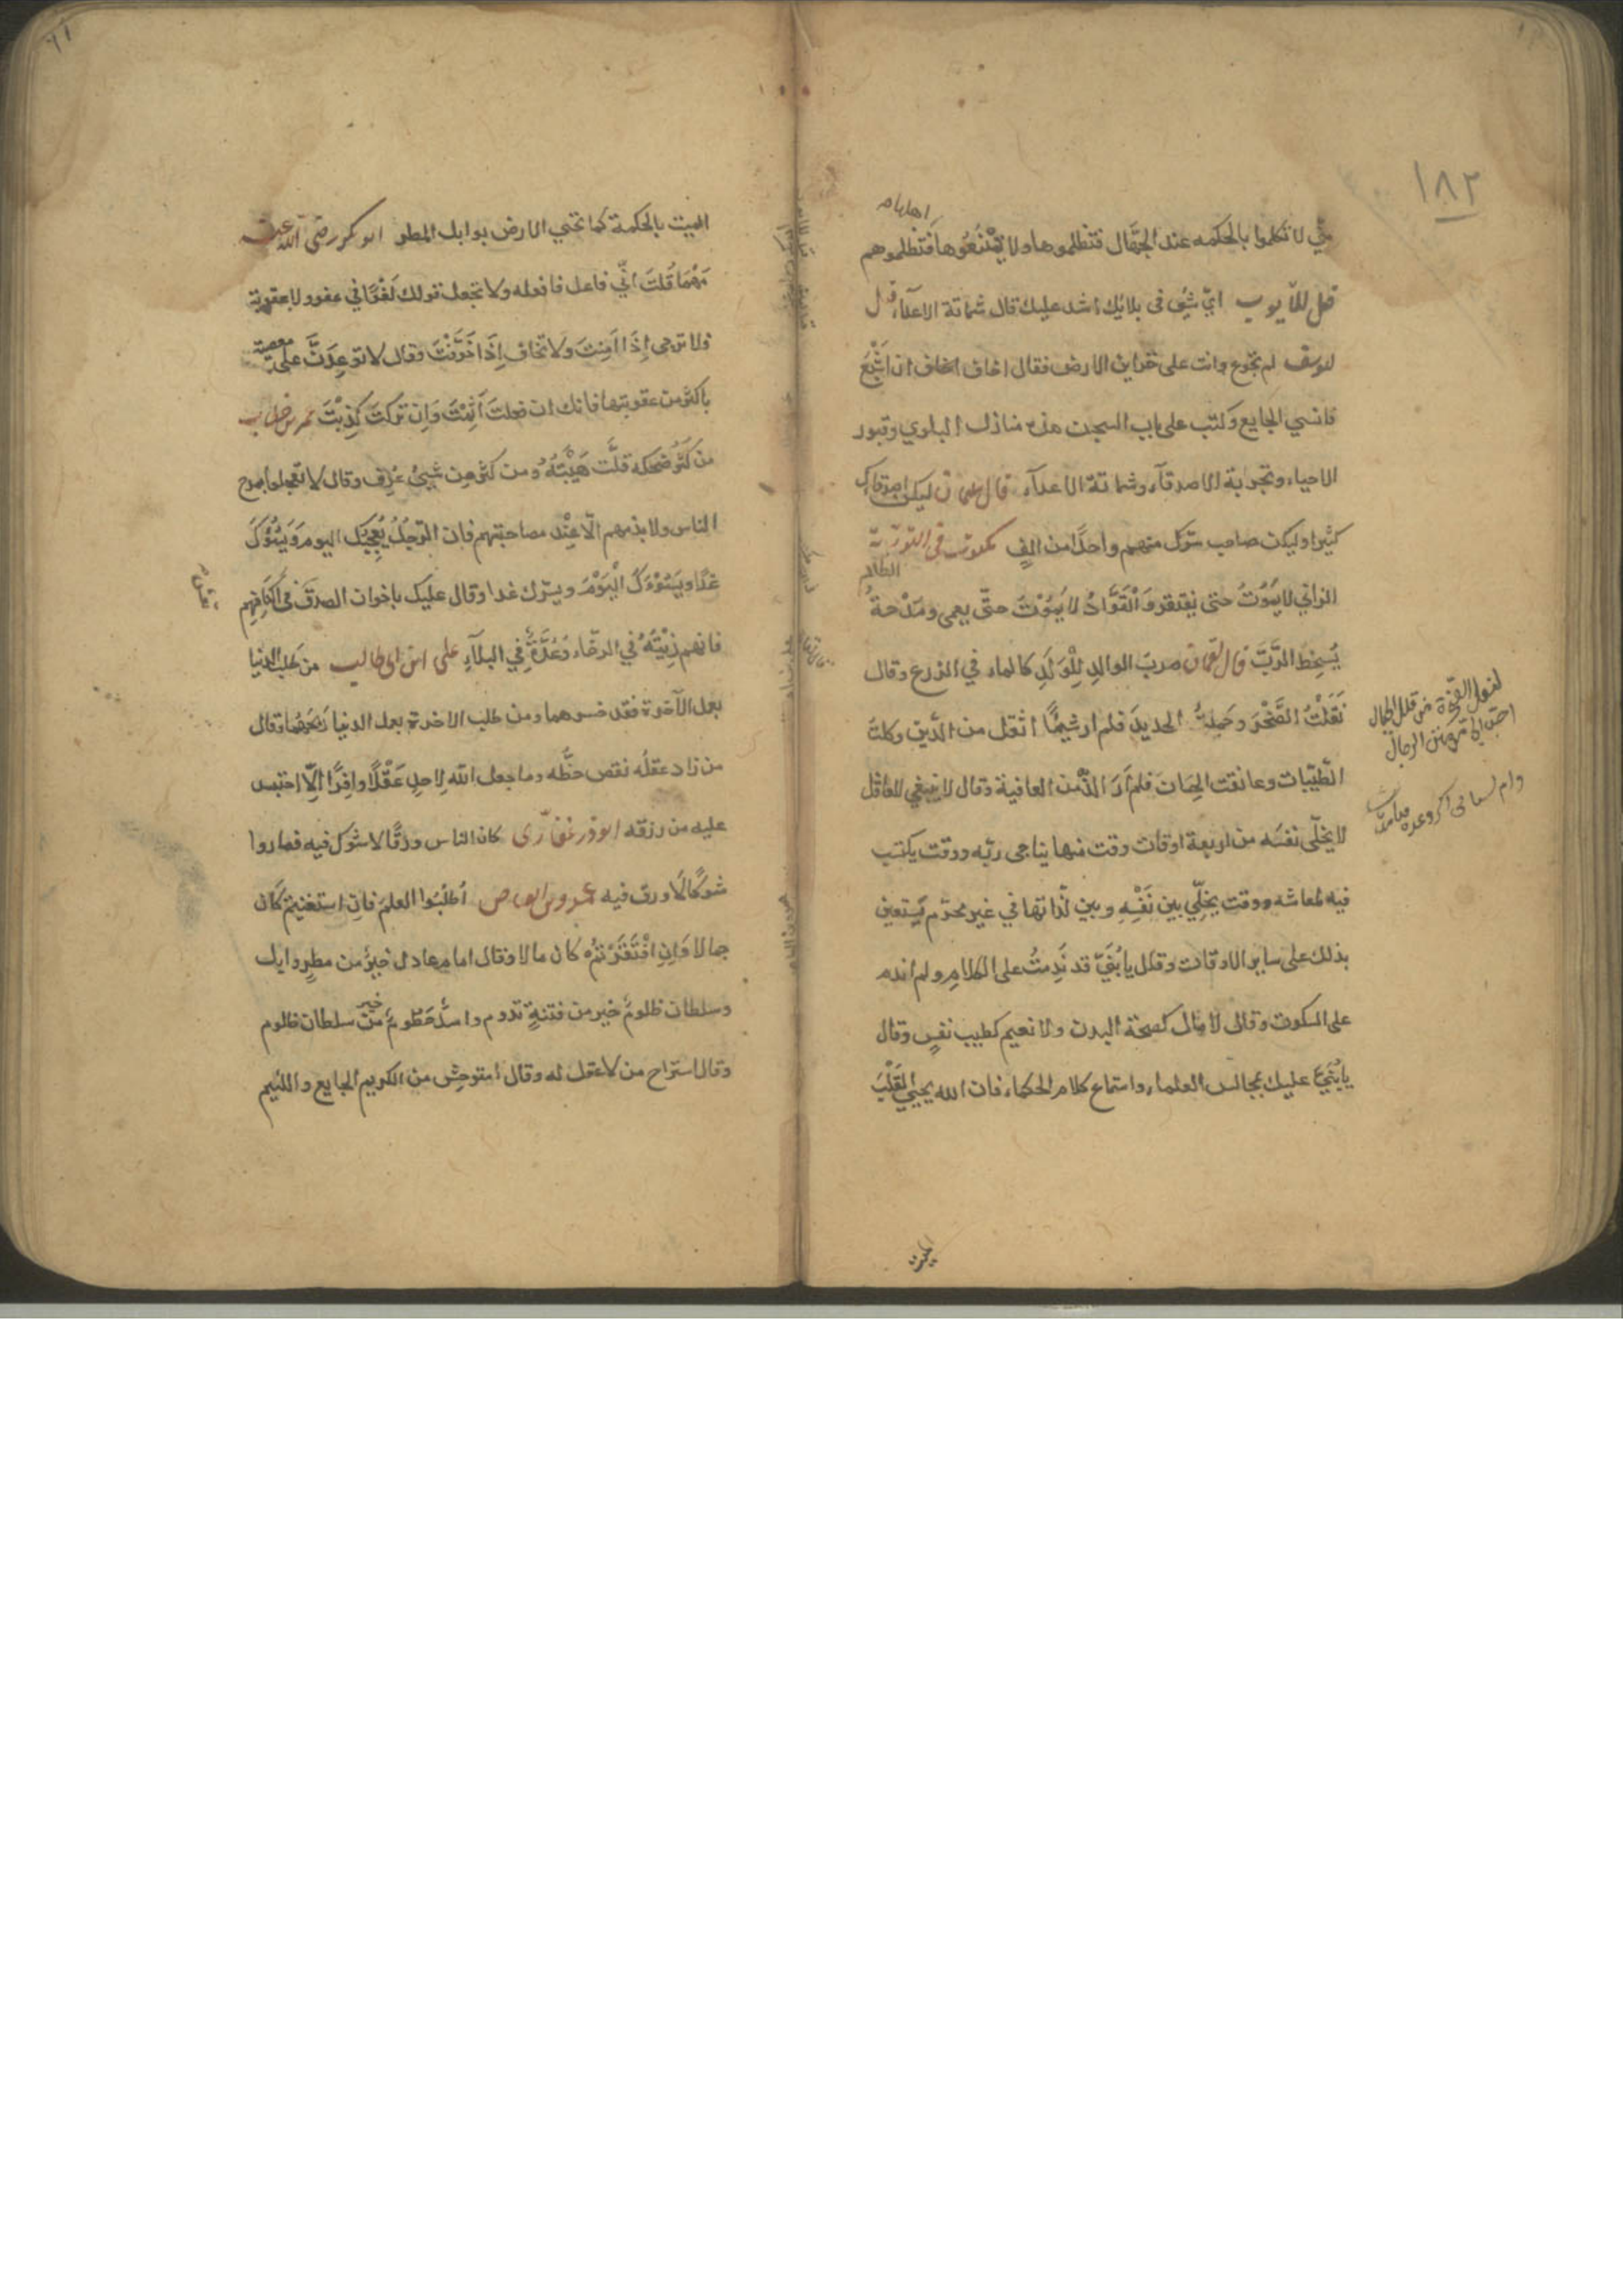 ١٨٢
اهلها
لا تكلموا بالحكمه عند الجهّال فتظلموها ولا تمْنَعُوها فتظلموهم
قيل للأيوب ايّ شئ فى بلائك اشد عليك قال شماتة الاعدآء قيل
ليوسف لم تجوع وانت على خزاين الارض فقال اخاف ان اَشْبَعَ
فانسي الجايع وكتب على باب السجن هذه منازل البلوي وقبور
الاحياء وتجربة الاصدقآء وشماتة الاعدآء قال ليكن اصدقاؤك
كثيرا وليكن صاحب سرّك منهم واحدًا من الفٍ مكتوب فى التورٰية
الزاني لا يَمُوتُ حتى يفتقر وَالْقَوَّادُ لا يَمُوْتُ حتّى يعمى ومَدْحةُ الظالم
يُسخِط الرَّبّ قال لقمان ضربُ الوالدِ لِلْوَلَدِ كالماء في الزرع وقال
نَقَلْتُ الصَّخْرَ وحَملتُ الحديدَ فلم ار شيئًا اثقل من الدَّين وكلتُ
الطّيّبات وعانقت الحِسَانَ فلم اَرَ الذّ من العافية وقال لا ينبغي للعاقل
لا يخلّي نفسَه من اربعة اوقات وقت منها يناجى ربّه ووقت يكتسب
فيه لمعاشه ووقت يخلِّي بين نَفْسِهِ وبين لذّاتها في غير محرّم يَستعين
بذلك على ساير الاوقات وقال يا بُنَيَّ قد نَدِمتُ على الكلامِ ولم اندم
على السكوت وقال لا مال كصحّة البدن ولا نعيم كطيب نفسٍ وقال
يا بُنَيَّ عليك بمجالس العلماء واستماع كلام الحكماء فان الله يحيي القَلْبَ
لنقل الصخرة من قلل الجبال
احبّ الىّ من منن الرجال
الميت
الميت بالحكمة كما تحيي الارض بوابل المطر ابو بكر رضى الله عنه
مَهْمَا قُلتَ انّي فاعل فافعله ولا تجعل قولك لَغْوًا في عفو ولا عقوبة
ولا ترجى اِذَا اَمِنتَ ولا تخاف اِذَا خَوَّفْتَ وقال لا توعِدَنَّ على معصية
باكثر من عقوبتها فانك ان فعلتَ اَثِمْتَ وَاِن تركتَ كَذِبْتَ عمر بن خطاب
من كَثُرَ ضحكه قلَّت هَيْبَتُهُ ومن كثر من شيئ عُرِفَ وقال لا تعجلوا بمدح
الناس ولا بذمهم الّا عِنْد مصاحبتهم فان الرّجُلُ يُعجِبُك اليوم وَيَسُؤُكَ
غدًا ويَسُوْءَكَ الْيَوْمَ ويسرّك غدا وقال عليك باخوان الصدق
فانهم زِيْنَةٌ في الرخّاء وَعُدَّةٌ فِي البلآءِ على ابن ابى طالب من طلب الدنيا
بعمل الآخرة فقد خسرهما ومن طلب الاخرة بعمل الدنيا رَبِحَهُمَا وقال
من زاد عقلُه نقص حظُّه وما جعل اللّه لاحدٍ عَقْلًا وافِرًا اِلّا احتبس
عليه من رزقه ابوذر غفارى كان الناس ورقًا لا شوك فيه فصاروا
شوكًا لَا ورق فيه عمرو بن العاص اُطْلُبُوا العلمَ فان استغنيتم كَان
جمالا وَاِن افْتَقَرْتُمْ كان مالا وقال امام عادل خيرٌ من مطرٍ وابل
وسلطان ظلومٌ خير من فتنةٍ تدوم واسدٌ حَطُومٌ خير من سلطان ظلوم
وقال استراح من لا عقل له وقال استوحِش من الكريم الجايع واللئيم